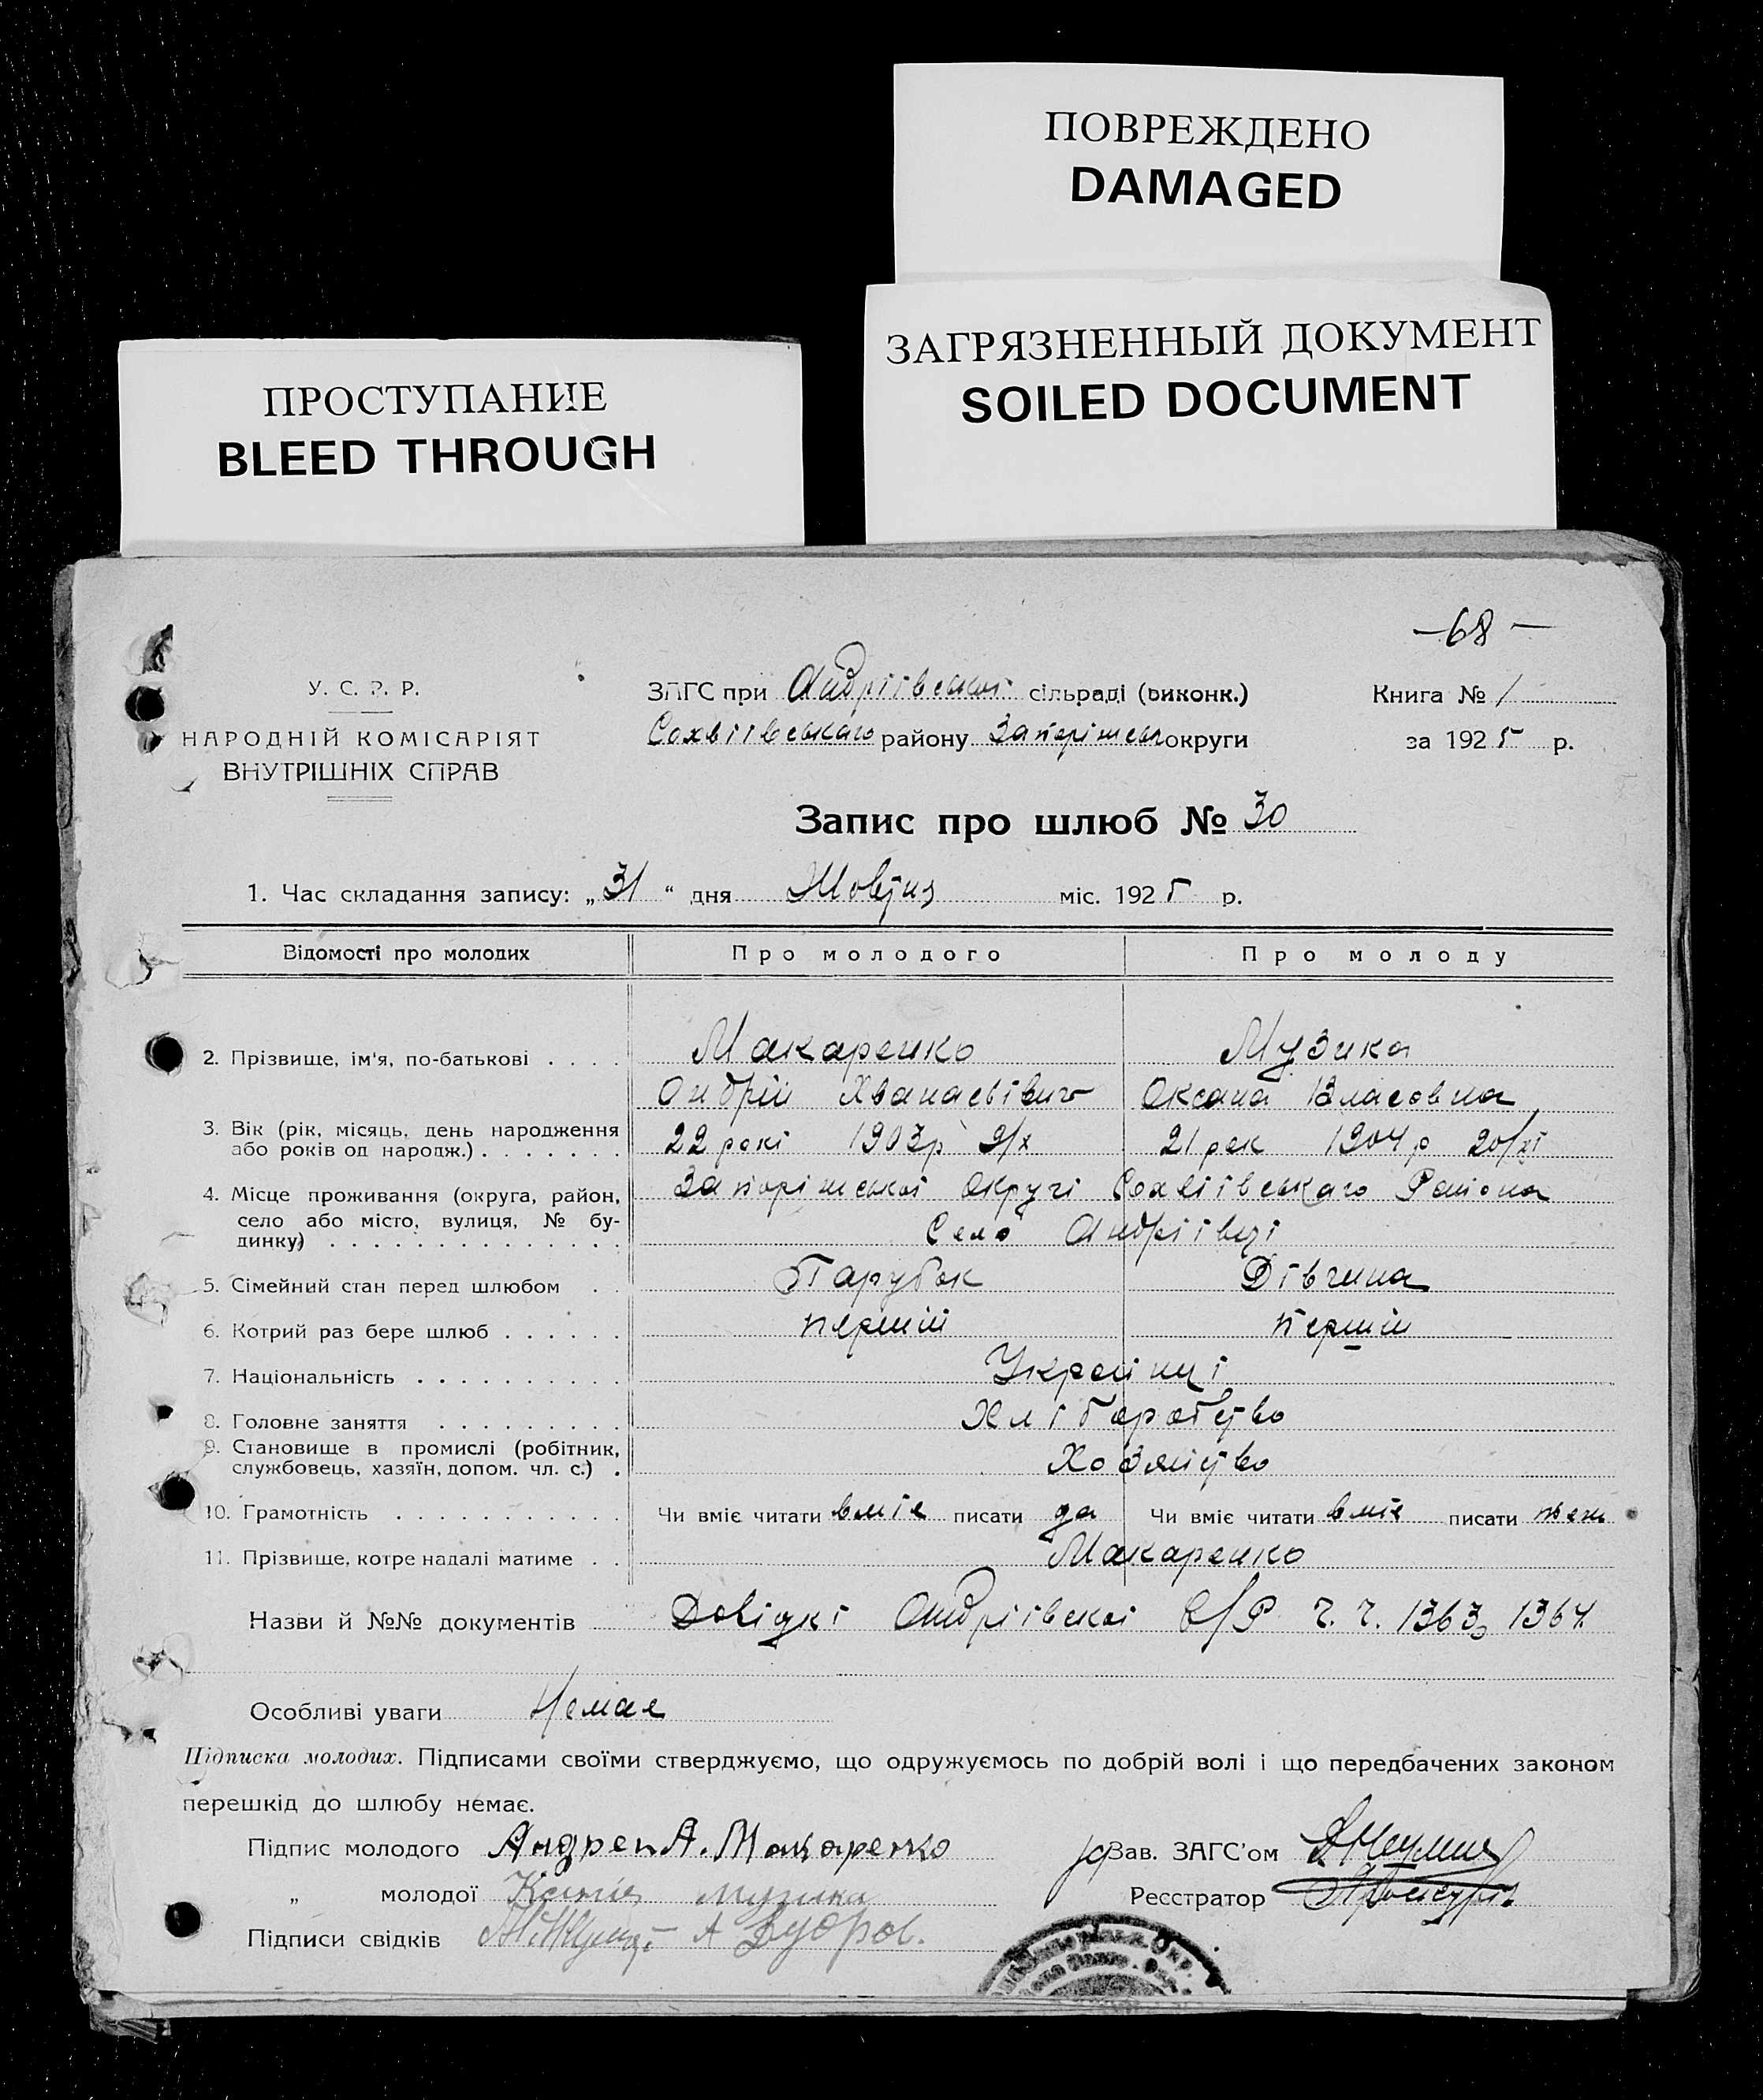 ПОВРЕЖДЕНО
DAMAGED
ЗАГРЯЗНЕННЫЙ ДОКУМЕНТ
SOILED DOCUMENT
ПРОСТУПАНИЕ
BLEED THROUGH
—68—
У. С. Р. Р.
НАРОДНІЙ КОМІСАРІЯТ
ВНУТРІШНІХ СПРАВ
ЗАГС при Андріівської сільраді (виконк.)
Сохвіівського району Запоріжськ округи
Книга № 1
за 1925 р.
Запис про шлюб № 30
1. Час складання запису: „31“ дня Жовтня міс. 1925 р.
Відомості про молодих Про молодого Про молоду
2. Прізвище, ім'я, по-батькові . . . . Макаренко Музика
Андрій Хванасьівич Оксана Власовна
3. Вік (рік, місяць, день народження
або років од народж.) . . . . . . . 22 рокі 1903р 9/х 21 рок 1904р 20/хі
4. Місце проживання (округа, район,
село або місто, вулиця, № бу-
динку) . . . . . . . . . . . . . . Запоріжської округі Сохвіівського Району
Село Андріівці
5. Сімейний стан перед шлюбом . . Парубок Дівчина
6. Котрий раз бере шлюб . . . . . . перший перший
7. Національність . . . . . . . . . . Украінці
8. Головне заняття . . . . . . . . . Хліборобство
9. Становище в промислі (робітник,
службовець, хазяїн, допом. чл. с.) . Хозяйство
10. Грамотність . . . . . . . . . . . Чи вміє читати вміє писати да Чи вміє читати вміє писати
11. Прізвище, котре надалі матиме . . Макаренко
Назви й №№ документів Довідкі Андріівскоі С/Р Ч. Ч. 1363, 1364
Особливі уваги Немає
Підписка молодих. Підписами своїми стверджуємо, що одружуємось по добрій волі і що передбачених законом
перешкід до шлюбу немає.
Підпис молодого Андреп А. Макаренко
Зав. ЗАГС'ом
„ молодої музика
Реєстратор
Підписи свідків